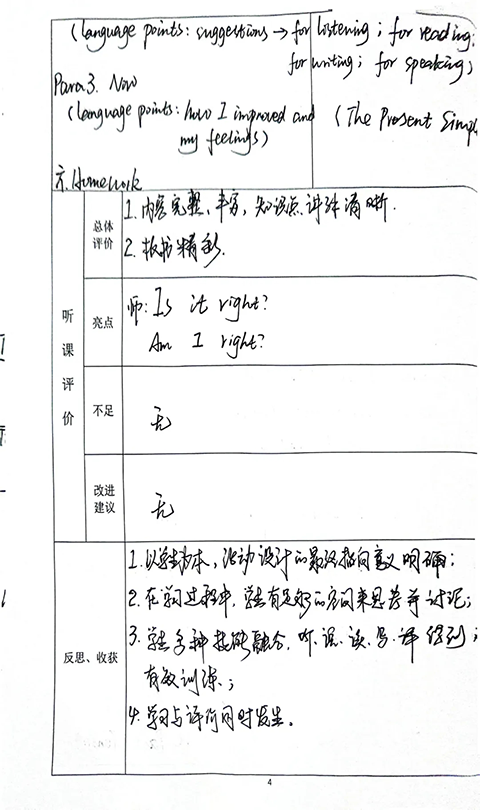 (language points: suggestions → for listening; for reading;
for writing; for speaking)
Para.3. Now
(language points: how I improved and my feelings) (The Present Simpl
六.Homework
听课评价
总体评价
1.内容完整、丰富,知识点讲解清晰.
2.板书精彩.
亮点
师: Is it right?
Am I right?
不足
无
改进建议
无
反思、收获
1.以学生为本,活动设计的最终指向意义明确;
2.在学习过程中,学生有足够的空间来思考并讨论;
3.学生多种技能融合,听、说、读、写、译得到
有效训练;
4.学习与评价同时发生。
4